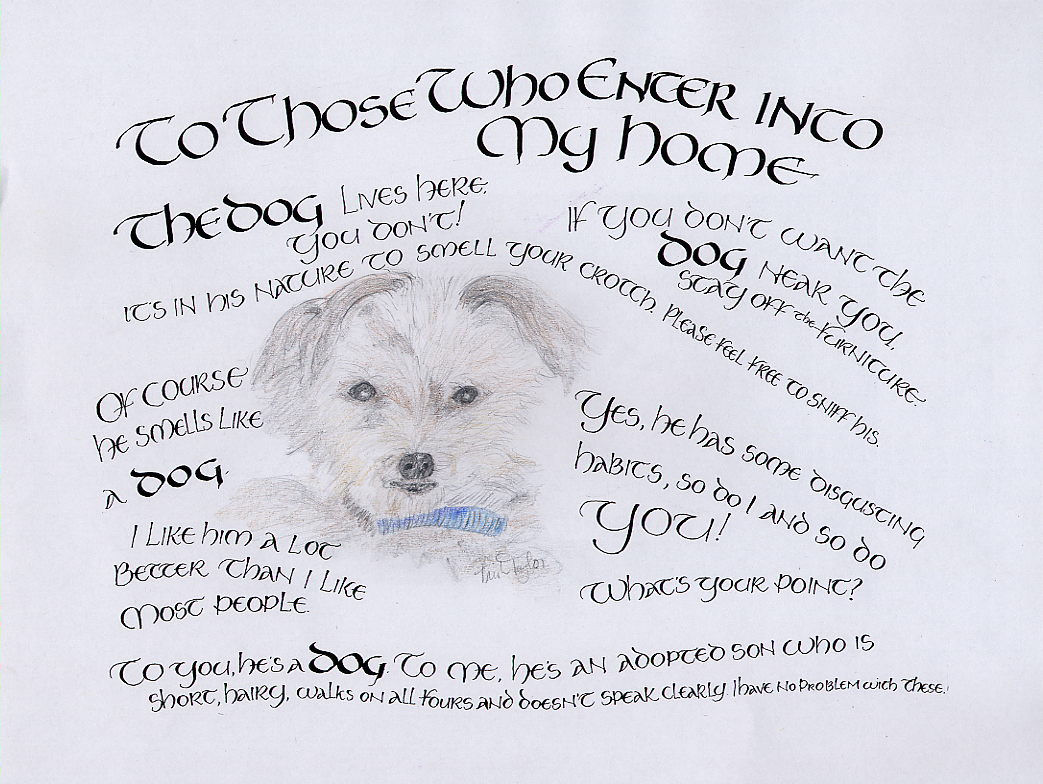 To Those Who Enter Into
My Home
The Dog Lives here.
You don't!
If you don't want the
Dog near you,
stay off the furniture.
It's in his nature to smell your crotch. Please feel free to sniff his.
Of course
he smells like
a Dog.
Yes, he has some disgusting
habits, so do I and so do
You!
What's your point?
I like him a lot
better than I like
most people.
To you, he's a Dog. To me, he's an adopted son who is
short, hairy, walks on all fours and doesn't speak clearly. I have no problem with these!